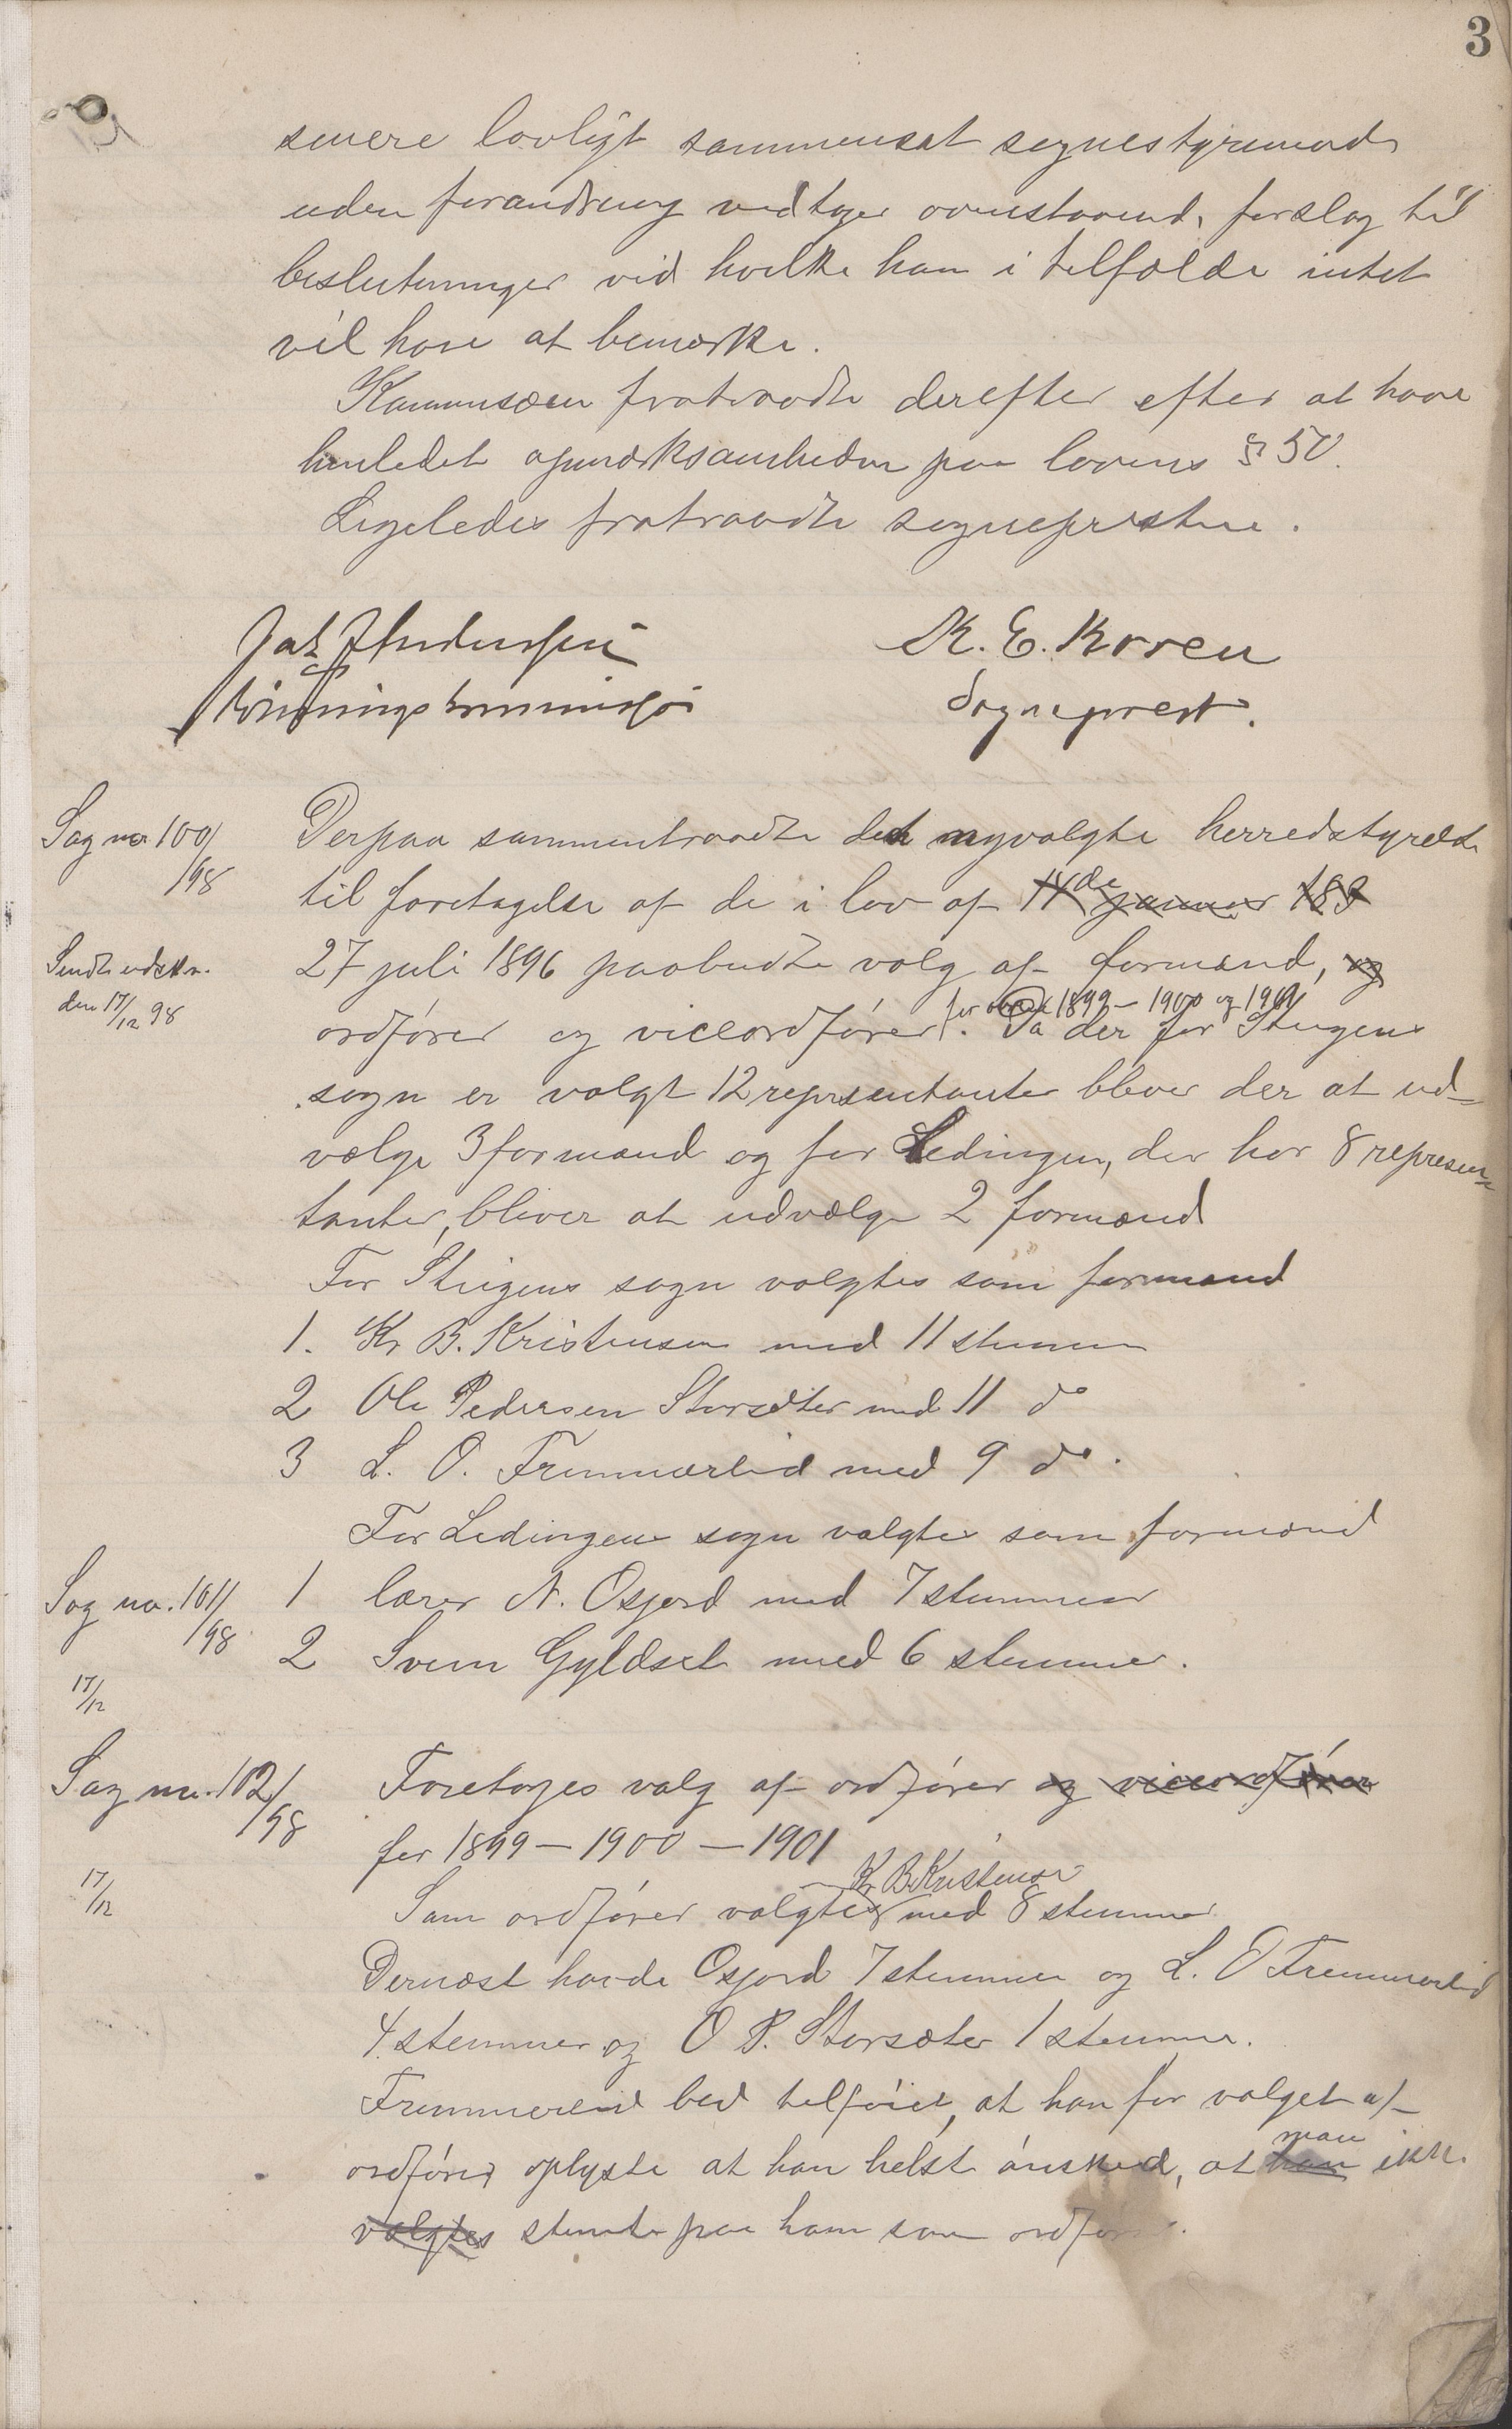 3
senere lovligt sammensat sognestyremøde
uden forandring vedtager ovenstaaende forslag til
beslutninger ved hvilke han i tilfælde intet
vil have at bemærke.
Kommissæren fratraadte derefter efter at have
henledet opmærksomheden paa lovens § 50.
Ligeledes fratraadte sognepresten.
Jak Andersen
K. E. Koren
Sogneprest.
Sag no 100/
/98
Derpaa sammentraadte det nyvalgte herredstyrelse
til foretagelse af de i lov af 14de januar 183
Sendt udskr.
den 17/12 98
27 juli 1896 paabudte valg af formænd, og
for 1899 - 1900 og 1901
ordfører og viceordfører. Da der for Steigens
sogn er valgt 12 representanter bliver der at ud-
vælge 3 formænd og for Ledingen, der har 8 represen-
tanter, bliver at udvælge 2 formænd
For Steigens sogn valgtes som formænd
1. Kr B. Kristensen med 11 stemmer
2 Ole Pedersen Storsæter med 11 do
3 L. O. Fremmerlid med 9 do.
For Ledingen sogn valgtes som formænd
Sag no. 101/
/98
1 lærer N. Osjord med 7 stemmer
2 Svein Gyldset med 6 stemmer.
17/12
Sag no. 102/
/98
Foretoges valg af ordfører og viceordfører
for 1899 - 1900 - 1901
17/12
Kr B. Kristensen
Som ordfører valgtes med 8 stemmer
Dernæst havde Osjord 7 stemmer og L. O Fremmerlid
4 stemmer og O P. Storsæter 1 stemme.
Fremmerlid bad tilføiet, at han før valget af
ordfører oplyste at han helst ønsked, at han man ikke
valgtes stemte paa ham som ordfører.